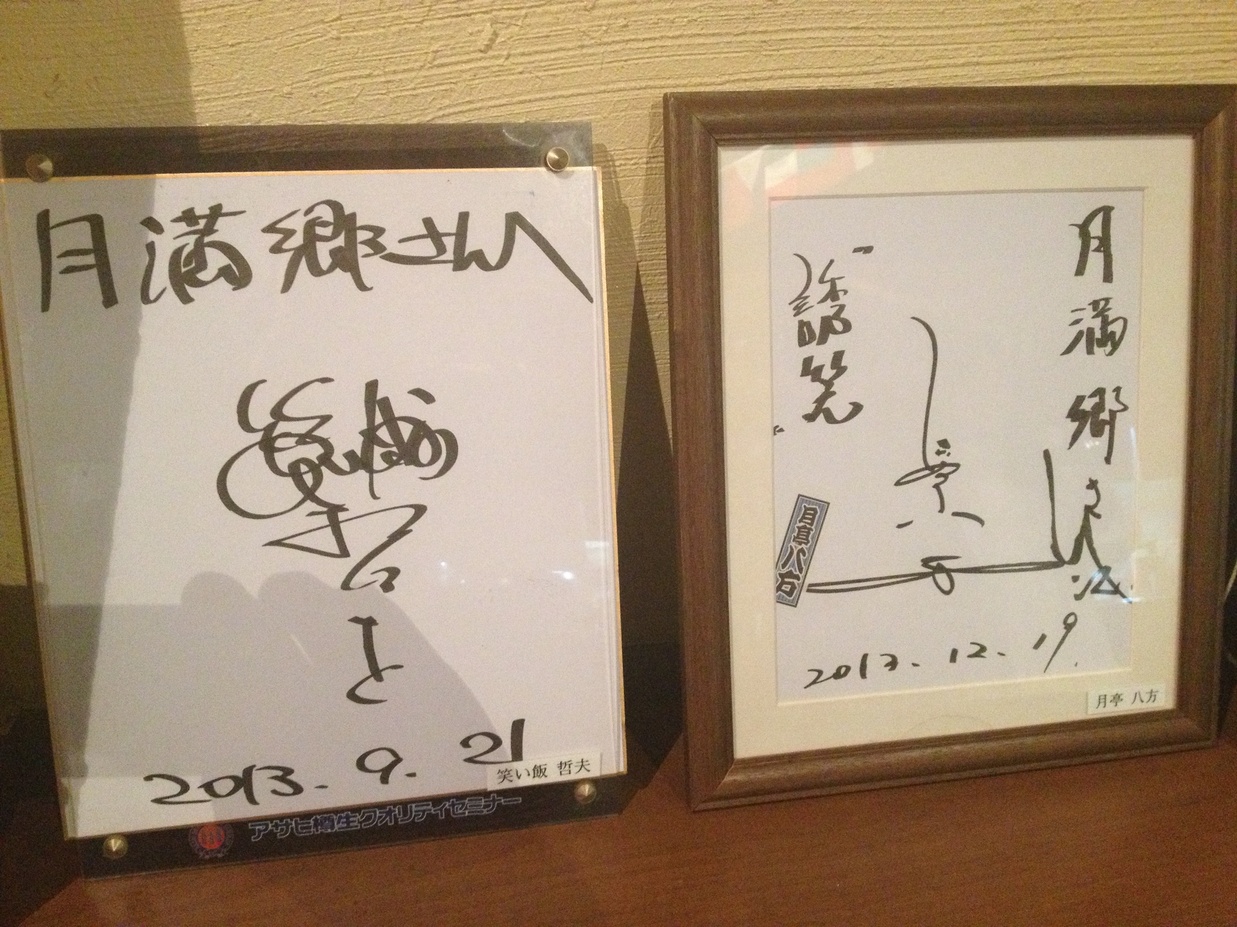 月満郷さんへ
2013.9.21
笑い飯 哲夫
アサヒ樽生クオリティセミナー
月満郷さん江
笑
月亭八方
2013.12.19.
月亭 八方